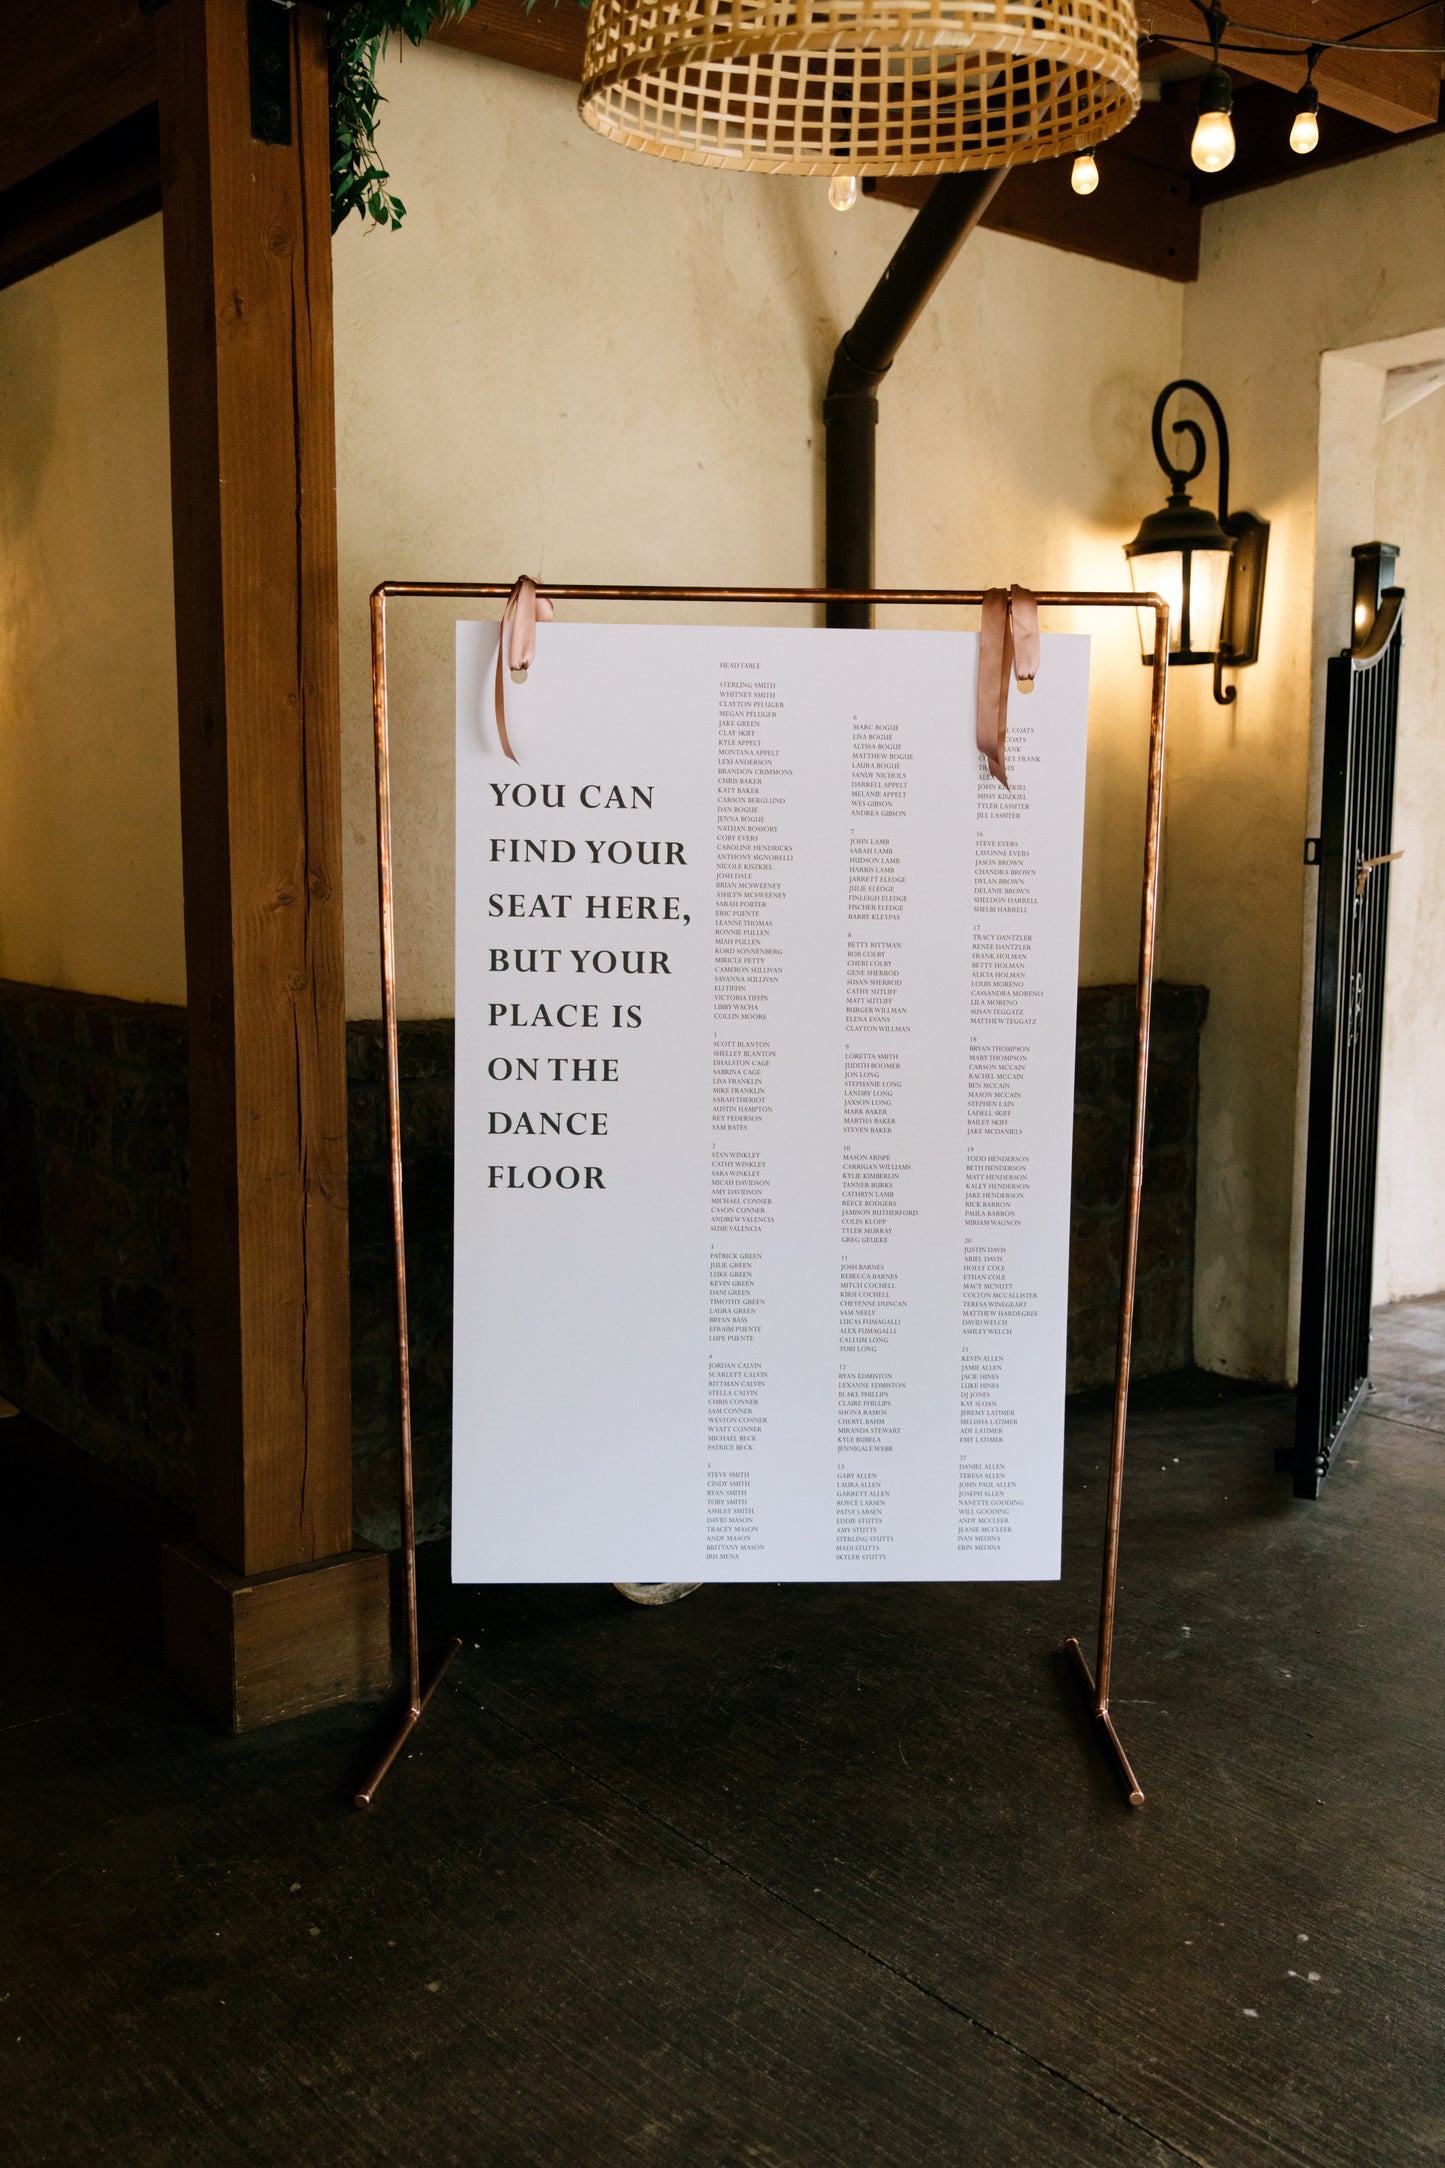 YOU CAN
FIND YOUR
SEAT HERE,
BUT YOUR
PLACE IS
ON THE
DANCE
FLOOR
HEAD TABLE
STERLING SMITH
WHITNEY SMITH
CLAYTON PFLUGER
MEGAN PFLUGER
JAKE GREEN
CLAY SKIFF
KYLE APPELT
MONTANA APPELT
LEXI ANDERSON
BRANDON CRIMMONS
CHRIS BAKER
KATY BAKER
CARSON BERGLUND
DAN BOGUE
JENNA BOGUE
NATHAN BOSSORY
COBY EVERS
CAROLINE HENDRICKS
ANTHONY SIGNORELLI
NICOLE KISZKIEL
JOSH DALE
BRIAN MCSWEENEY
ASHLYN MCSWEENEY
SARAH PORTER
ERIC PUENTE
LEANNE THOMAS
RONNIE PULLEN
MIAH PULLEN
KORD SONNENBERG
MIRICLE PETTY
CAMERON SULLIVAN
SAVANNA SULLIVAN
ELI TIFFIN
VICTORIA TIFFIN
LIBBY WACHA
COLLIN MOORE
1
SCOTT BLANTON
SHELLEY BLANTON
DHALSTON CAGE
SABRINA CAGE
LISA FRANKLIN
MIKE FRANKLIN
SARAH THERIOT
AUSTIN HAMPTON
REY PEDERSON
SAM BATES
2
STAN WINKLEY
CATHY WINKLEY
SARA WINKLEY
MICAH DAVIDSON
AMY DAVIDSON
MICHAEL CONNER
CASON CONNER
ANDREW VALENCIA
SUSIE VALENCIA
3
PATRICK GREEN
JULIE GREEN
LUKE GREEN
KEVIN GREEN
DANI GREEN
TIMOTHY GREEN
LAURA GREEN
BRYAN BASS
EFRAIM PUENTE
LUPE PUENTE
4
JORDAN CALVIN
SCARLETT CALVIN
RITTMAN CALVIN
STELLA CALVIN
CHRIS CONNER
SAM CONNER
WESTON CONNER
WYATT CONNER
MICHAEL BECK
PATRICE BECK
5
STEVE SMITH
CINDY SMITH
RYAN SMITH
TOBY SMITH
ASHLEY SMITH
DAVID MASON
TRACEY MASON
ANDY MASON
BRITTANY MASON
IRIS MENA
6
MARC BOGUE
LISA BOGUE
ALYSSA BOGUE
MATTHEW BOGUE
LAURA BOGUE
SANDY NICHOLS
DARRELL APPELT
MELANIE APPELT
WES GIBSON
ANDREA GIBSON
7
JOHN LAMB
SARAH LAMB
HUDSON LAMB
HARRIS LAMB
JARRETT ELEDGE
JULIE ELEDGE
FINLEIGH ELEDGE
FISCHER ELEDGE
BARRY KLEYPAS
8
BETTY RITTMAN
BOB COLBY
CHERI COLBY
GENE SHERROD
SUSAN SHERROD
CATHY SUTLIFF
MATT SUTLIFF
BURGER WILLMAN
ELENA EVANS
CLAYTON WILLMAN
9
LORETTA SMITH
JUDITH BOOMER
JON LONG
STEPHANIE LONG
LANDRY LONG
JAXSON LONG
MARK BAKER
MARTHA BAKER
STEVEN BAKER
10
MASON ARISPE
CARRIGAN WILLIAMS
KYLIE KIMBERLIN
TANNER BURKS
CATHRYN LAMB
REECE RODGERS
JAMISON RUTHERFORD
COLIN KLOPP
TYLER MURRAY
GREG GEUEKE
11
JOSH BARNES
REBECCA BARNES
MITCH COCHELL
KIRSI COCHELL
CHEYENNE DUNCAN
SAM NEELY
LUCAS FUMAGALLI
ALEX FUMAGALLI
CALLUM LONG
TORI LONG
12
RYAN EDMISTON
LEXANNE EDMISTON
BLAKE PHILLIPS
CLAIRE PHILLIPS
SHONA RAMOS
CHERYL BAHM
MIRANDA STEWART
KYLE BUBELA
JENNIGALE WEBB
13
GARY ALLEN
LAURA ALLEN
GARRETT ALLEN
ROYCE LARSEN
PATSY LARSEN
EDDIE STUTTS
AMY STUTTS
STERLING STUTTS
MADI STUTTS
SKYLER STUTTS
COATS
COATS
FRANK
JOHN KISZKIEL
MISSY KISZKIEL
TYLER LASSITER
JILL LASSITER
16
STEVE EVERS
LAVONNE EVERS
JASON BROWN
CHANDRA BROWN
DYLAN BROWN
DELANIE BROWN
SHELDON HARRELL
SHELBI HARRELL
17
TRACY DANTZLER
RENEE DANTZLER
FRANK HOLMAN
BETTY HOLMAN
ALICIA HOLMAN
LOUIS MORENO
CASSANDRA MORENO
LILA MORENO
SUSAN TEGGATZ
MATTHEW TEGGATZ
18
BRYAN THOMPSON
MARY THOMPSON
CARSON MCCAIN
RACHEL MCCAIN
BEN MCCAIN
MASON MCCAIN
STEPHEN LAIN
LADELL SKIFF
BAILEY SKIFF
JAKE MCDANIELS
19
TODD HENDERSON
BETH HENDERSON
MATT HENDERSON
KALEY HENDERSON
JAKE HENDERSON
RICK BARRON
PAULA BARRON
MIRIAM WAGNON
20
JUSTIN DAVIS
ARIEL DAVIS
HOLLY COLE
ETHAN COLE
MACY MCNUTT
COLTON MCCALLISTER
TERESA WINEGEART
MATTHEW HARDEGREE
DAVID WELCH
ASHLEY WELCH
21
KEVIN ALLEN
JAMIE ALLEN
JACIE HINES
LUKE HINES
DJ JONES
KAY SLOAN
JEREMY LATIMER
MELISHA LATIMER
ADY LATIMER
EMY LATIMER
22
DANIEL ALLEN
TERESA ALLEN
JOHN PAUL ALLEN
JOSEPH ALLEN
NANETTE GOODING
WILL GOODING
ANDY MCCLEER
JEANIE MCCLEER
IVAN MEDINA
ERIN MEDINA